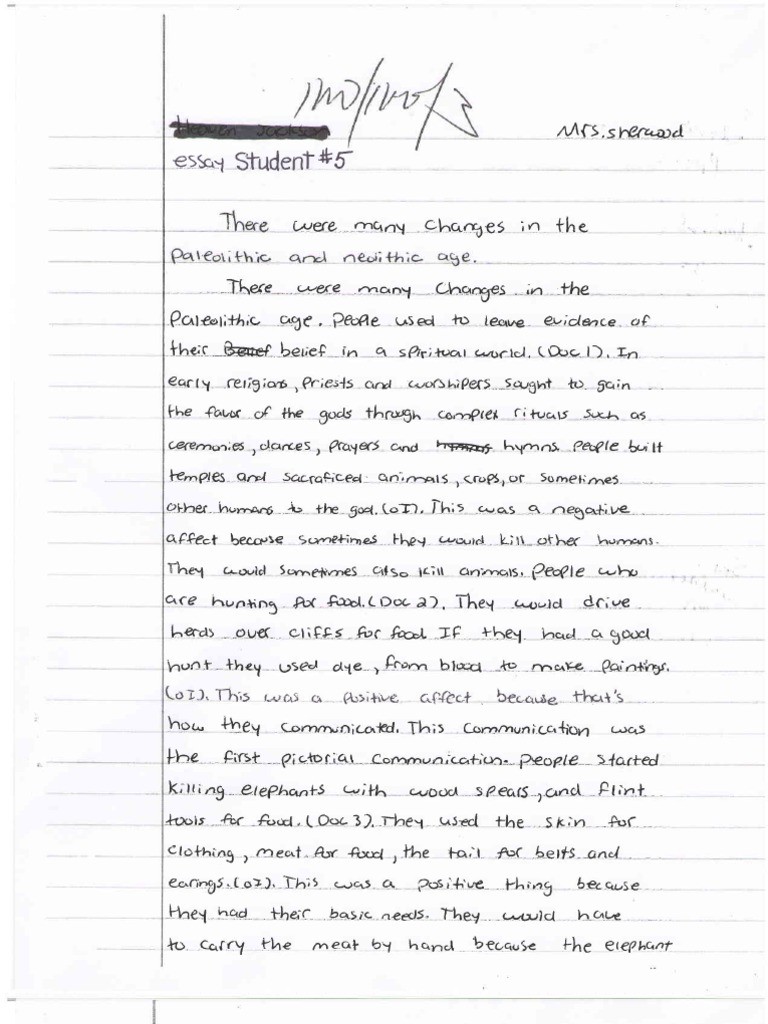 Mrs. Sherwood
essay Student #5
There were many changes in the
Paleolithic and neolithic age.
There were many changes in the
Paleolithic age. People used to leave evidence of
their belief in a spiritual world. (Doc 1). In
early religions, Priests and worshipers sought to gain
the favor of the gods through complex rituals such as
ceremonies, dances, prayers and hymns. People built
temples and sacraficed animals, crops, or sometimes
other humans to the god. (OI). This was a negative
affect because sometimes they would kill other humans.
They would sometimes also kill animals. People who
are hunting for food. (Doc 2). They would drive
herds over cliffs for food If they had a good
hunt they used dye, from blood to make paintings.
(OI). This was a positive affect because that's
how they communicated. This communication was
the first pictorial communication. People started
killing elephants with wood spears, and flint
tools for food. (Doc 3). They used the skin for
clothing, meat for food, the tail for belts and
earings. (OI). This was a positive thing because
they had their basic needs. They would have
to carry the meat by hand because the elephant